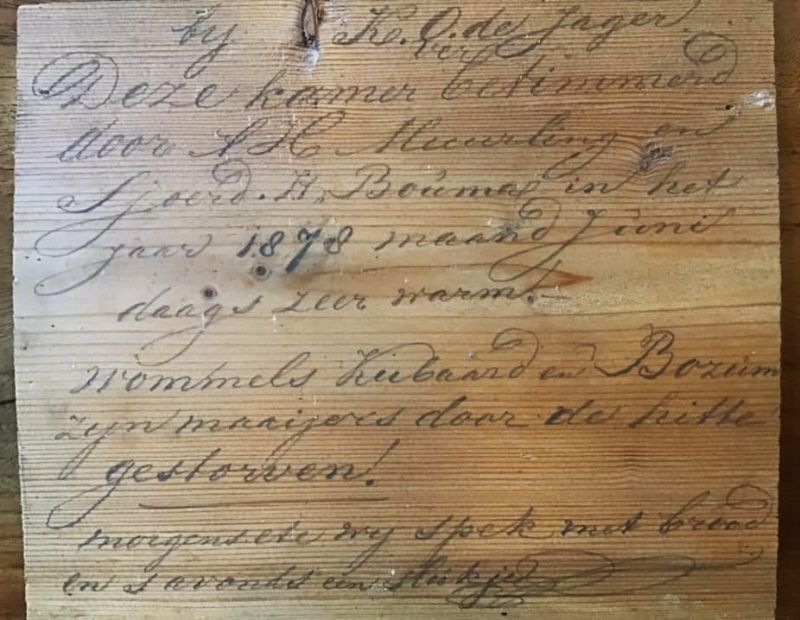 by K. O. de Jager
Deze kamer vertimmerd betimmerd
door A H Muurling en
Sjoerd. H. Boumas in het
jaar 1878 maand Juni
daags zeer warm!
Wommels Kubaard en Bozum
zyn maaijers door de hitte
gestorven!
morgens ete wy spek met brood
en s avonds een stukje